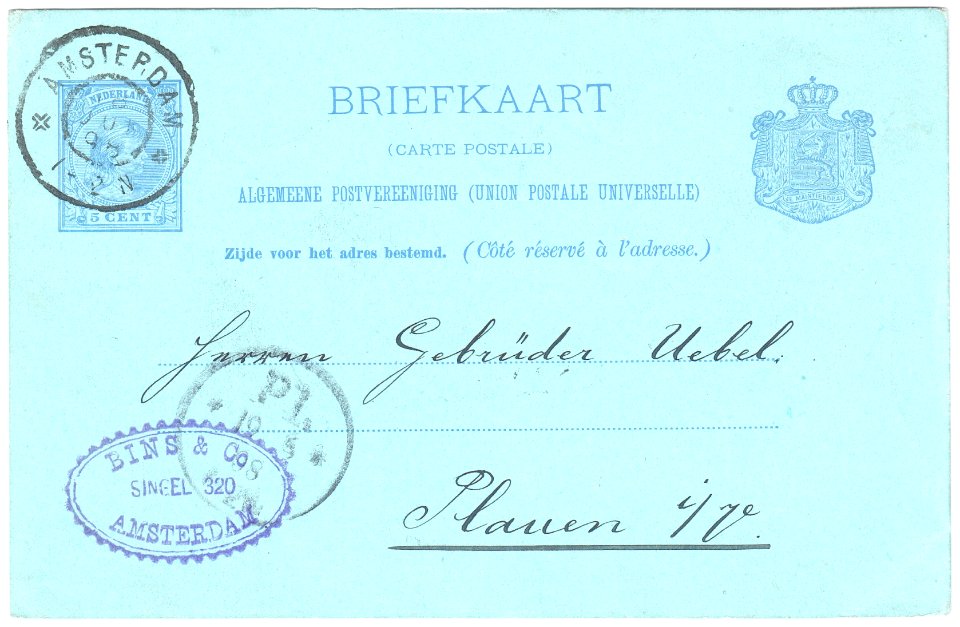 AMSTERDAM
1-2 N
NEDERLAND
5 CENT
BRIEFKAART
(CARTE POSTALE)
ALGEMEENE POSTVEREENIGING (UNION POSTALE UNIVERSELLE)
Zijde voor het adres bestemd. (Côté réservé à l'adresse.)
JE MAINTIENDRAI
Herren Gebrüder Uebel.
BINS & Co
SINGEL 320
AMSTERDAM
Plauen i/V.